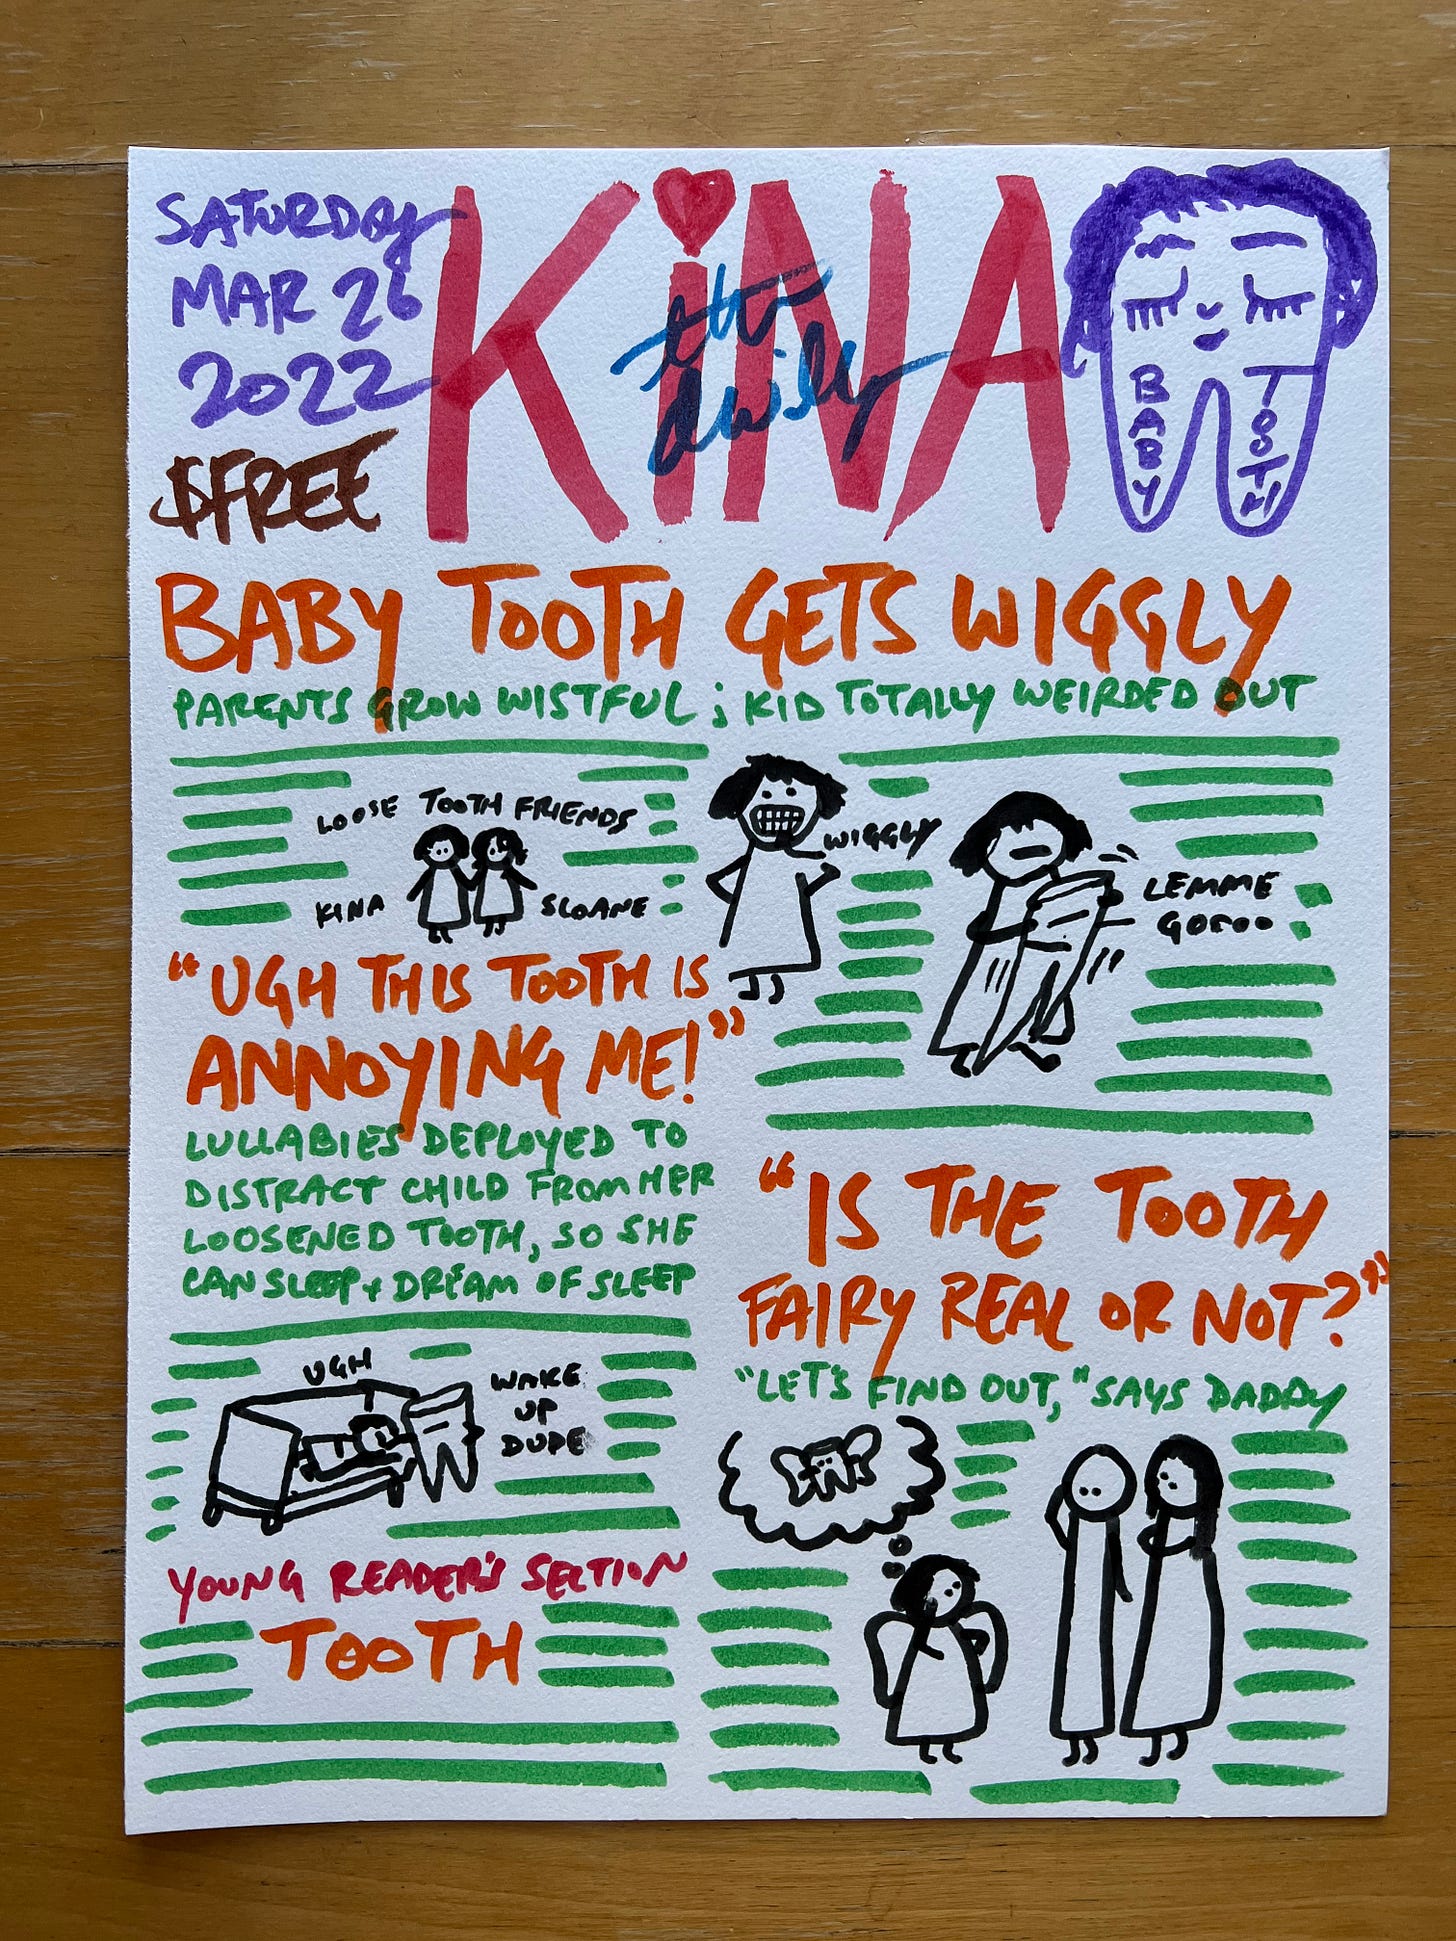 SATURDAY
MAR 26
2022
$FREE
KiNA
the daily
BABY
TOOTH
BABY TOOTH GETS WIGGLY
PARENTS GROW WISTFUL; KID TOTALLY WEIRDED OUT
LOOSE TOOTH FRIENDS
KINA
SLOANE
WIGGLY
LEMME
GOOOO
"UGH THIS TOOTH IS
ANNOYING ME!"
LULLABIES DEPLOYED TO
DISTRACT CHILD FROM HER
LOOSENED TOOTH, SO SHE
CAN SLEEP + DREAM OF SLEEP
UGH
WAKE
UP
DUDE
YOUNG READER'S SECTION
TOOTH
"IS THE TOOTH
FAIRY REAL OR NOT?"
"LET'S FIND OUT," SAYS DADDY